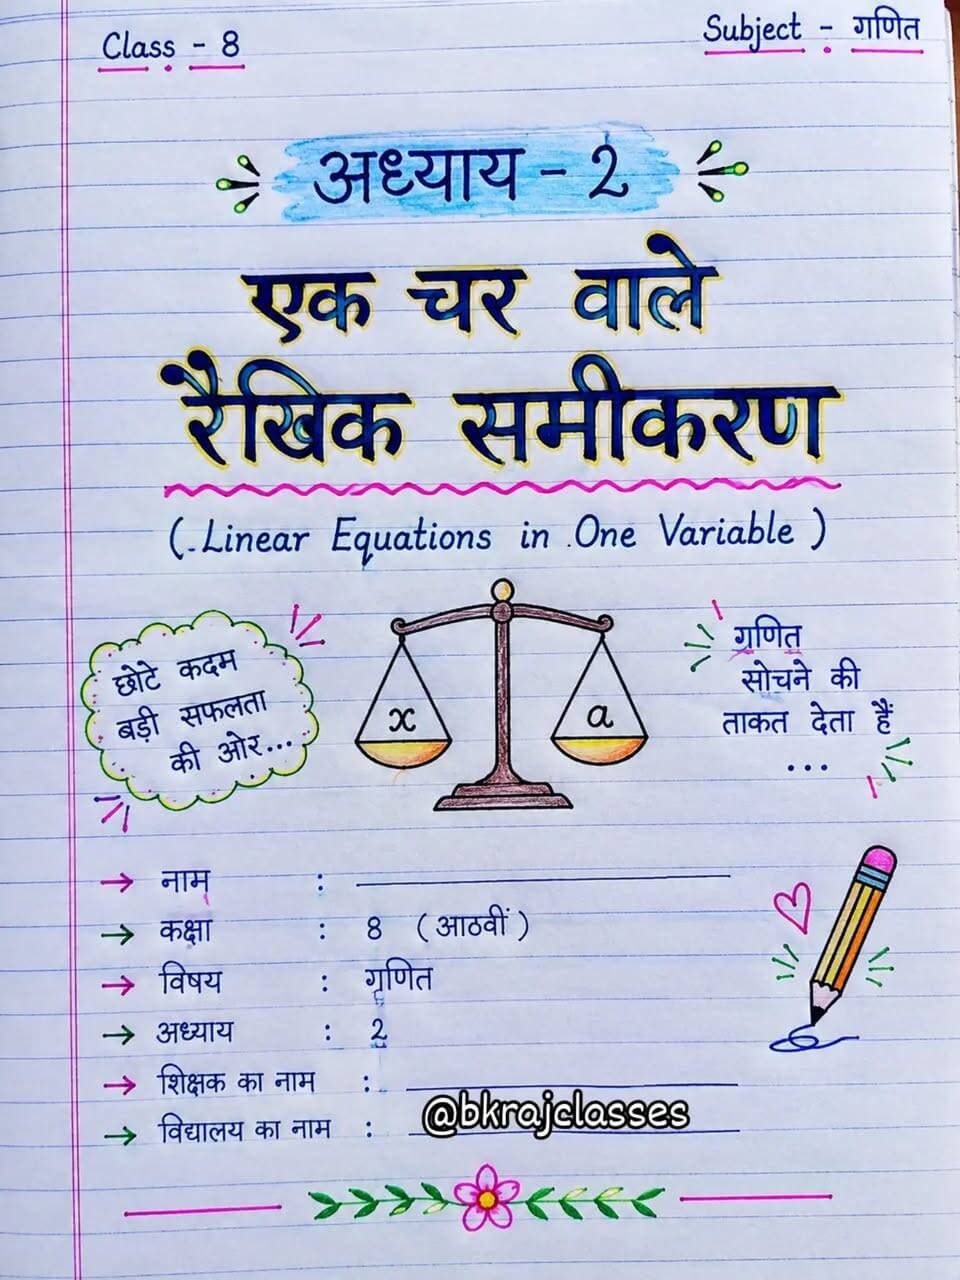 Class - 8
Subject - गणित
अध्याय - 2
एक चर वाले
रैखिक समीकरण
(Linear Equations in One Variable)
छोटे कदम
बड़ी सफलता
की ओर...
x
a
गणित
सोचने की
ताकत देता हैं
...
→ नाम :
→ कक्षा : 8 (आठवीं)
→ विषय : गणित
→ अध्याय : 2
→ शिक्षक का नाम :
→ विद्यालय का नाम :
@bkrajclasses